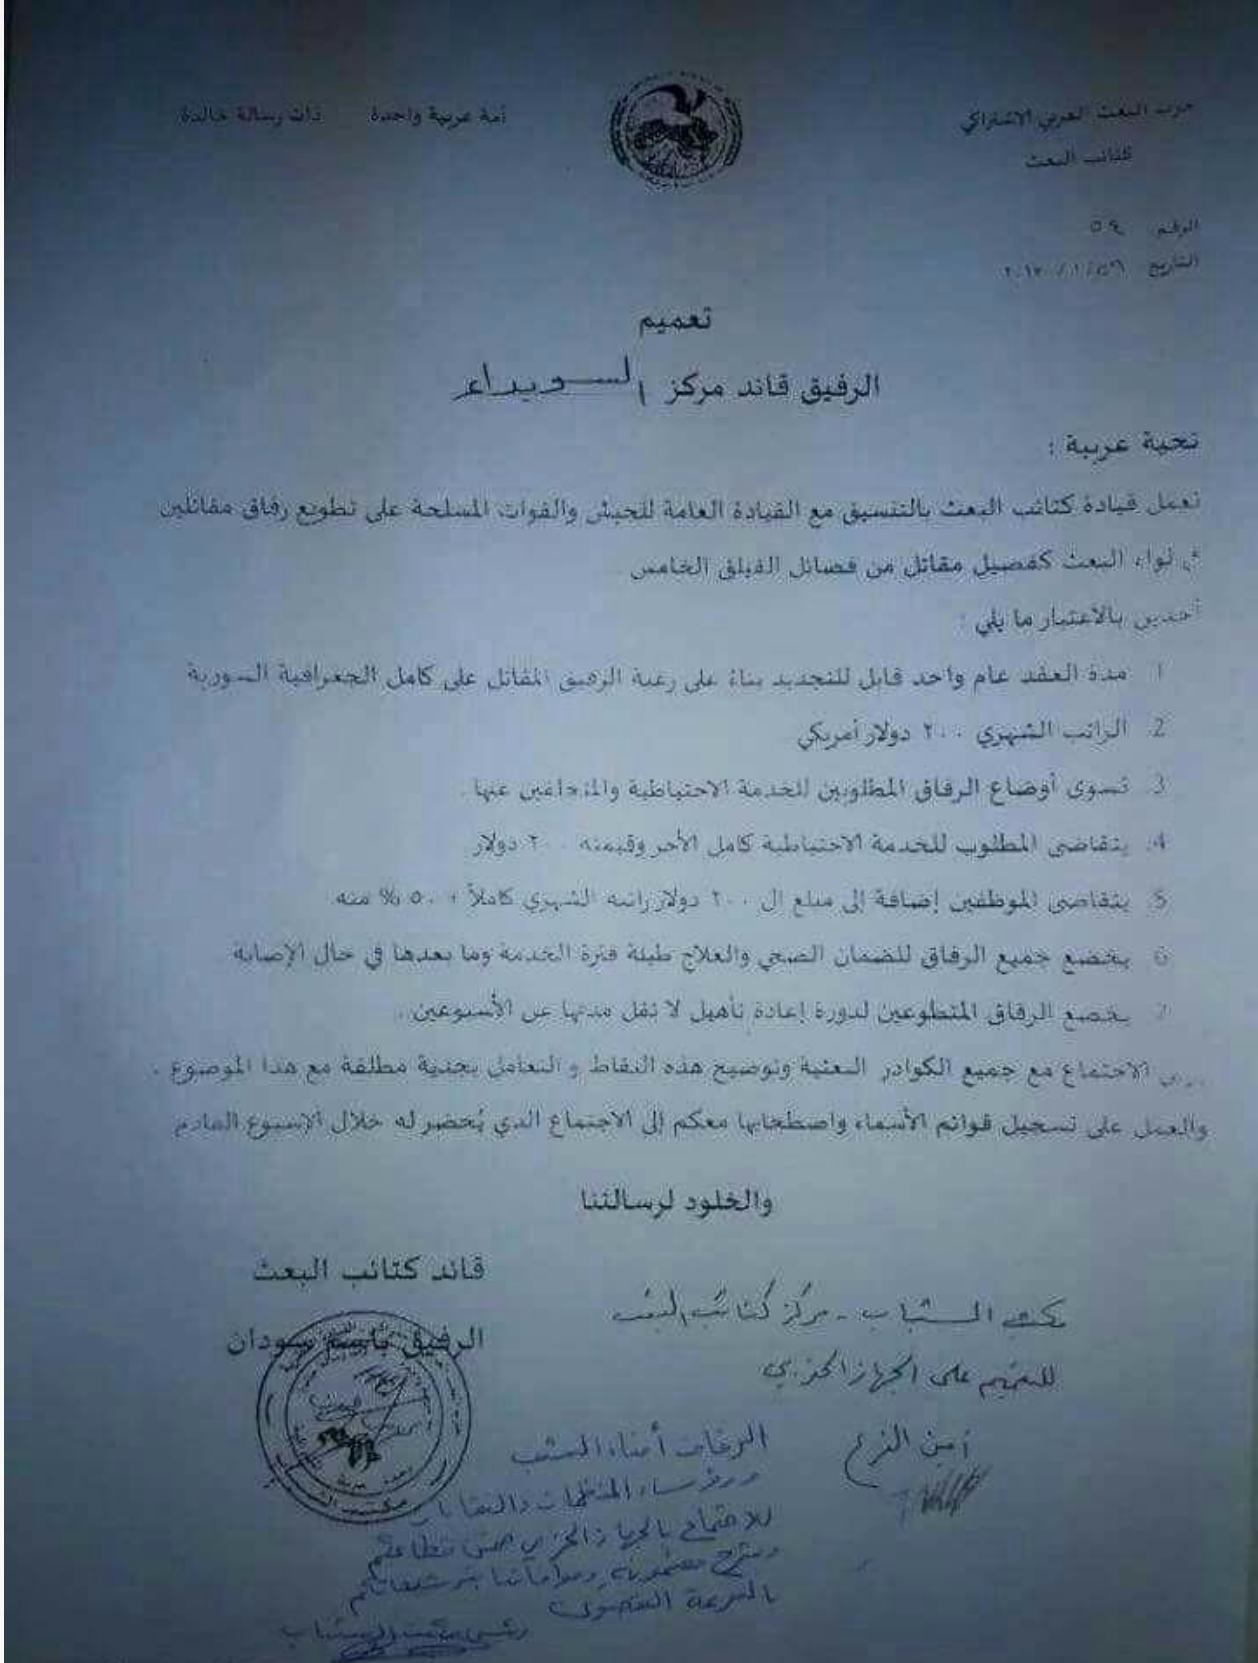 حزب البعث العربي الاشتراكي
كتائب البعث
أمة عربية واحدة ذات رسالة خالدة
الرقم
التاريخ
تعميم
الرفيق قائد مركز السويداء
تحية عربية :
تعمل قيادة كتائب البعث بالتنسيق مع القيادة العامة للجيش والقوات المسلحة على تطويع رفاق مقاتلين
في لواء البعث كفصيل مقاتل من فصائل الفيلق الخامس
آخذين بالاعتبار ما يلي :
1. مدة العقد عام واحد قابل للتجديد بناءً على رغبة الرفيق المقاتل على كامل الجغرافية السورية
2. الراتب الشهري ٢٠٠ دولار أمريكي
3. تسوى أوضاع الرفاق المطلوبين للخدمة الاحتياطية والمتخلفين عنها .
4. يتقاضى المطلوب للخدمة الاحتياطية كامل الأجر وقيمته ٢٠٠ دولار
5. يتقاضى الموظفين إضافة إلى مبلغ ال ٢٠٠ دولار راتبه الشهري كاملاً + ٥٠ % منه
6. يخضع جميع الرفاق للضمان الصحي والعلاج طيلة فترة الخدمة وما بعدها في حال الإصابة
7. يخضع الرفاق المتطوعين لدورة إعادة تأهيل لا تقل مدتها عن الأسبوعين .
يرجى الاجتماع مع جميع الكوادر البعثية وتوضيح هذه النقاط و التعامل بجدية مطلقة مع هذا الموضوع .
والعمل على تسجيل قوائم الأسماء واصطحابها معكم إلى الاجتماع الذي يُحضر له خلال الإسبوع القادم
والخلود لرسالتنا
قائد كتائب البعث
الرفيق باسم سودان
مكتب الشباب - مركز كتائب البعث
للتعميم على الجهاز الحزبي
أمين الفرع
الرفاق أمناء الشعب
ورؤساء المنظمات والنقابات
للاجتماع بالجهاز الحزبي ضمن قطاعكم
وشرح مضمونه وموافاتنا
بالسرعة القصوى
رئيس مكتب الشباب